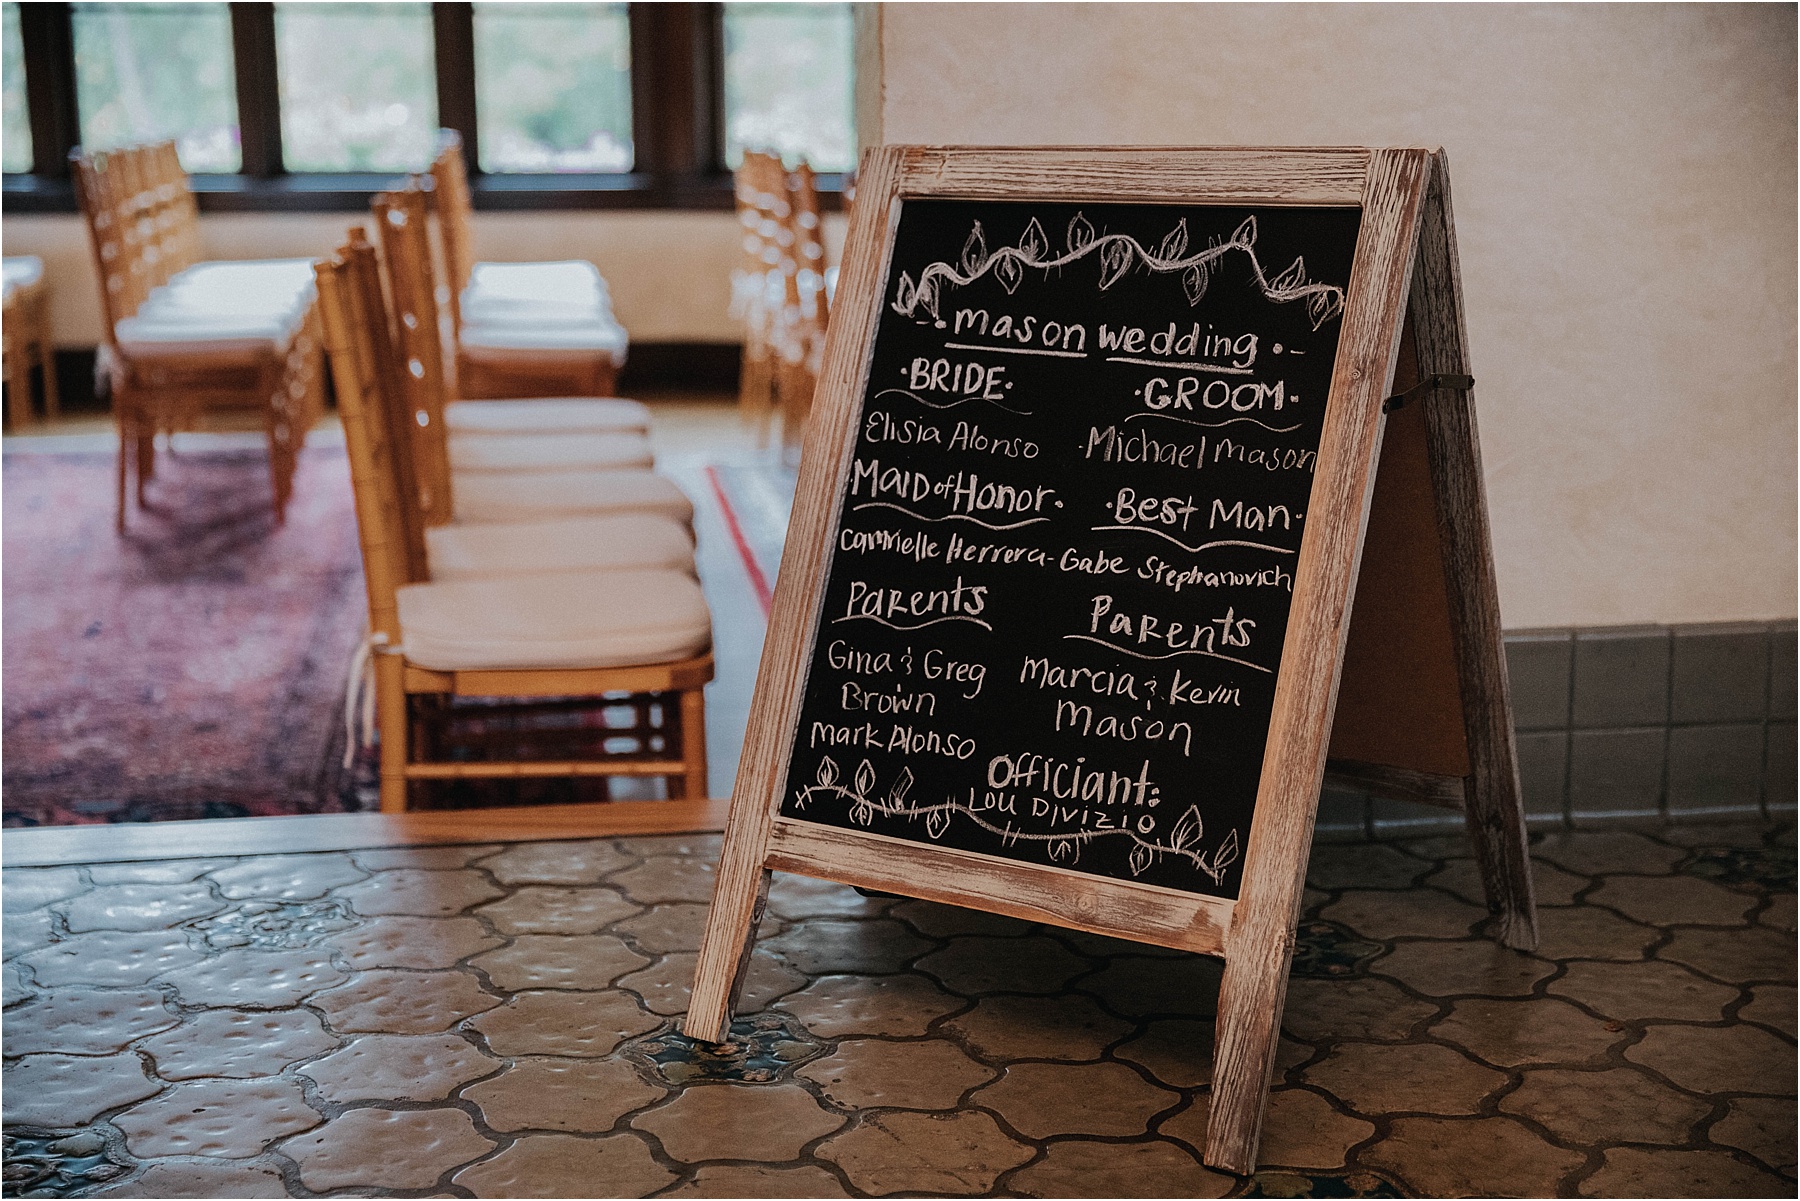 mason wedding
BRIDE
GROOM
Elisia Alonso
Michael mason
Maid of Honor
Best Man
Camrielle Herrera - Gabe Stephanovich
Parents
Parents
Gina & Greg
Brown
Marcia & Kevin
Mason
Mark Alonso
Officiant:
Lou Divizio